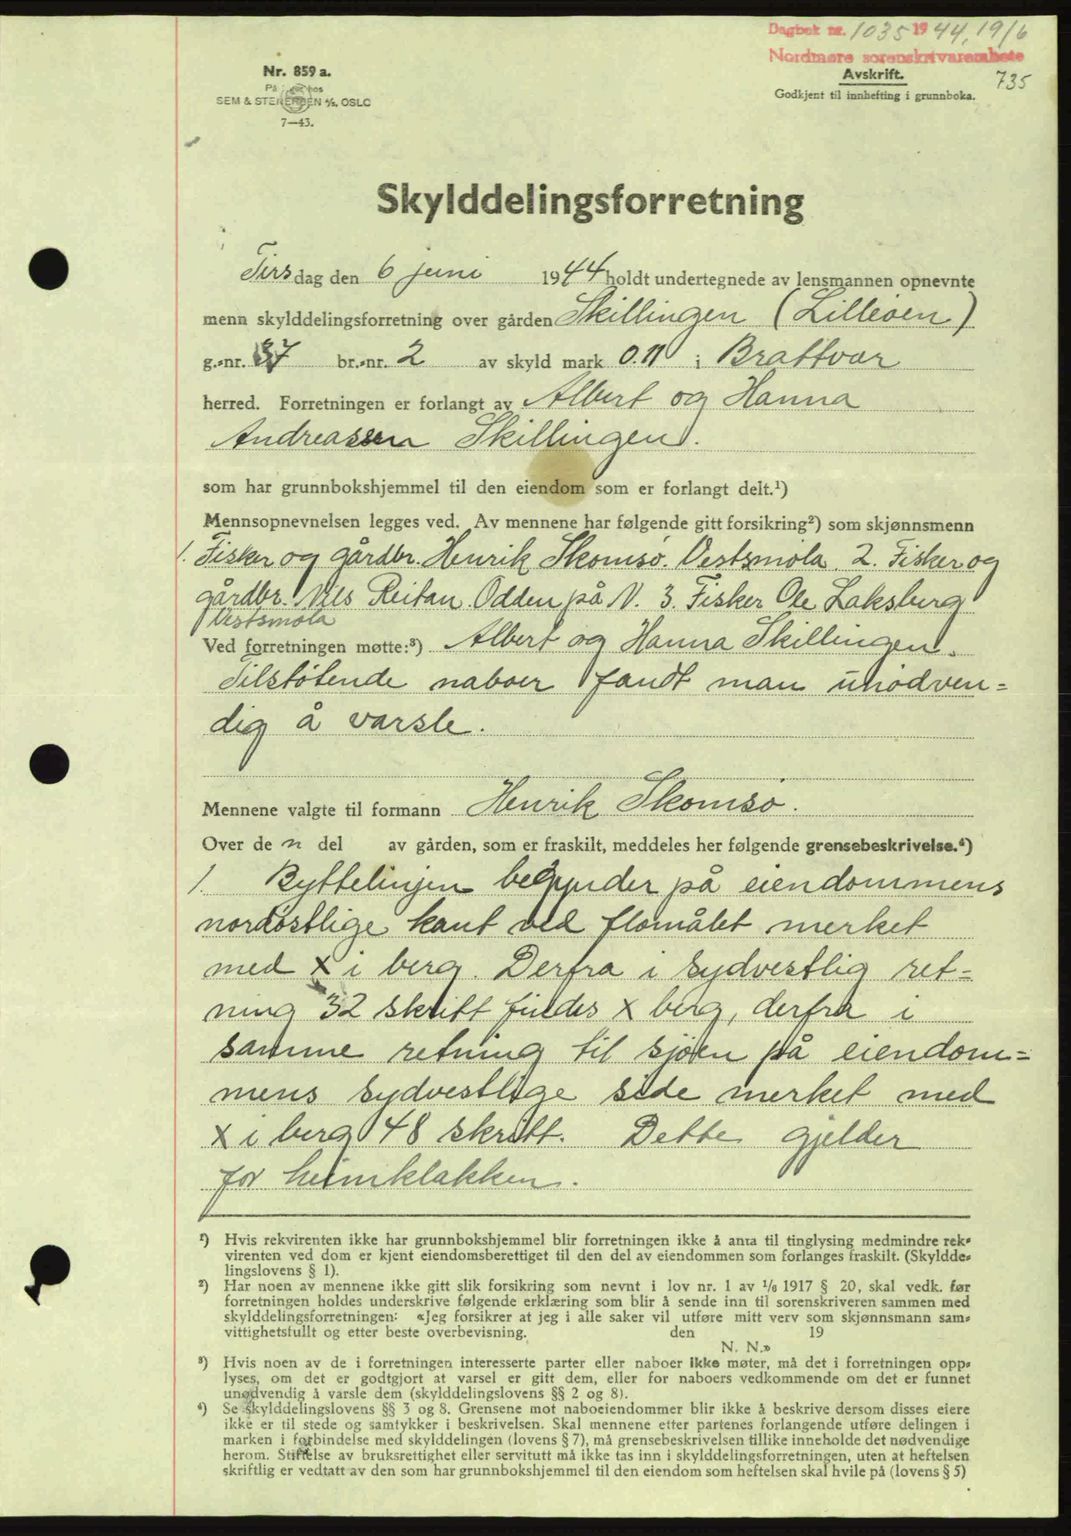 Dagbok nr. 1035 1944, 19/6
Nordmøre sorenskriverembete
Nr. 859 a.
SEM & STENERSEN A/S, OSLO
7—43.
Avskrift.
Godkjent til innhefting i grunnboka.
735
Skylddelingsforretning
Tirsdag den 6 juni 1944 holdt undertegnede av lensmannen opnevnte
menn skylddelingsforretning over gården Skillingen (Lilleøen)
g.-nr. 37 br.-nr. 2 av skyld mark 0.11 i Brattvær
herred. Forretningen er forlangt av Albert og Hanna
Andreassen Skillingen.
som har grunnbokshjemmel til den eiendom som er forlangt delt.¹)
Mennsopnevnelsen legges ved. Av mennene har følgende gitt forsikring²) som skjønnsmenn
1. Fisker og gårdbr. Henrik Skomsø. Vestsmøla. 2. Fisker og
gårdbr. Nils Reitan Odden på V. 3. Fisker Ole Laksberg
Vestsmøla
Ved forretningen møtte:³) Albert og Hanna Skillingen.
Tilstøtende naboer fandt man unødven=
dig å varsle.
Mennene valgte til formann Henrik Skomsø.
Over de n del av gården, som er fraskilt, meddeles her følgende grensebeskrivelse.⁴)
1. Byttelinjen begynder på eiendommens
nordøstlige kant ved flomålet merket
med x i berg. Derfra i sydvestlig ret=
ning 32 skritt findes x berg, derfra i
samme retning til sjøen på eiendom=
mens sydvestlige side merket med
x i berg 48 skritt. Dette gjelder
for heimklakken.
¹) Hvis rekvirenten ikke har grunnbokshjemmel blir forretningen ikke å anta til tinglysing medmindre rek-
virenten ved dom er kjent eiendomsberettiget til den del av eiendommen som forlanges fraskilt. (Skyldde-
lingslovens § 1).
²) Har noen av mennene ikke gitt slik forsikring som nevnt i lov nr. 1 av 1/6 1917 § 20, skal vedk. før
forretningen holdes underskrive følgende erklæring som blir å sende inn til sorenskriveren sammen med
skylddelingsforretningen: «Jeg forsikrer at jeg i alle saker vil utføre mitt verv som skjønnsmann sam-
vittighetsfullt og etter beste overbevisning. den 19
N. N.»
³) Hvis noen av de i forretningen interesserte parter eller naboer ikke møter, må det i forretningen opp-
lyses, om det er godtgjort at varsel er gitt dem, eller for naboers vedkommende om det er funnet
unødvendig å varsle dem (skylddelingslovens §§ 2 og 8).
⁴) Se skylddelingslovens §§ 3 og 8. Grensene mot naboeiendommer blir ikke å beskrive dersom disses eiere
ikke er til stede og samtykker i beskrivelsen. Skal mennene etter partenes forlangende utføre delingen i
marken i forbindelse med skylddelingen (lovens § 7), må grensebeskrivelsen tillike inneholde det nødvendige
herom. Stiftelse av bruksrettighet eller servitutt må ikke tas inn i skylddelingsforretningen, uten at heftelsen
skriftlig er vedtatt av den som har grunnbokshjemmel til den eiendom som heftelsen skal hvile på (lovens § 5)